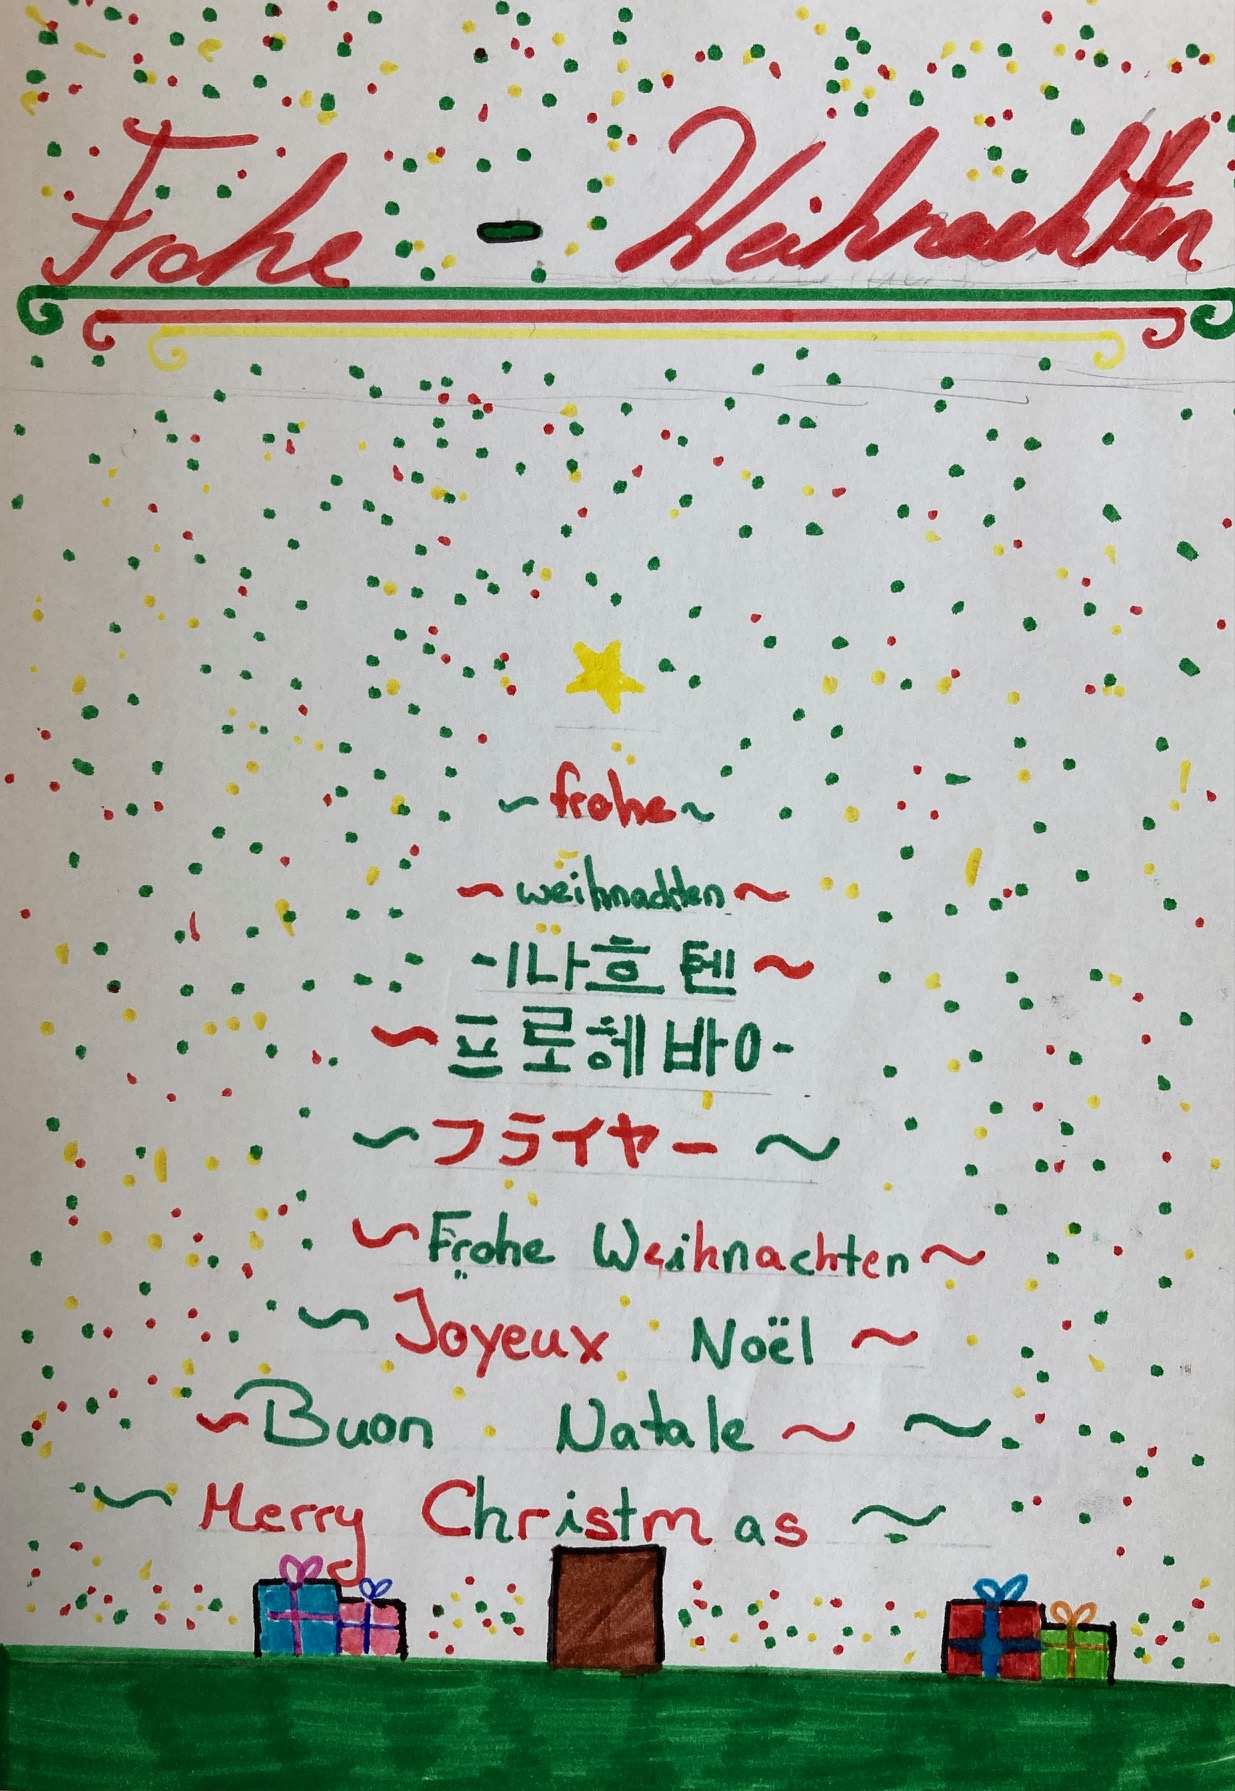 Frohe - Weihnachten
~frohe~
~weihnachten~
-ㅣ나흐 텐~
~프로헤 바ㅇ-
~フライヤー~
~Frohe Weihnachten~
~Joyeux Noël~
~Buon Natale~ ~
~Merry Christmas~